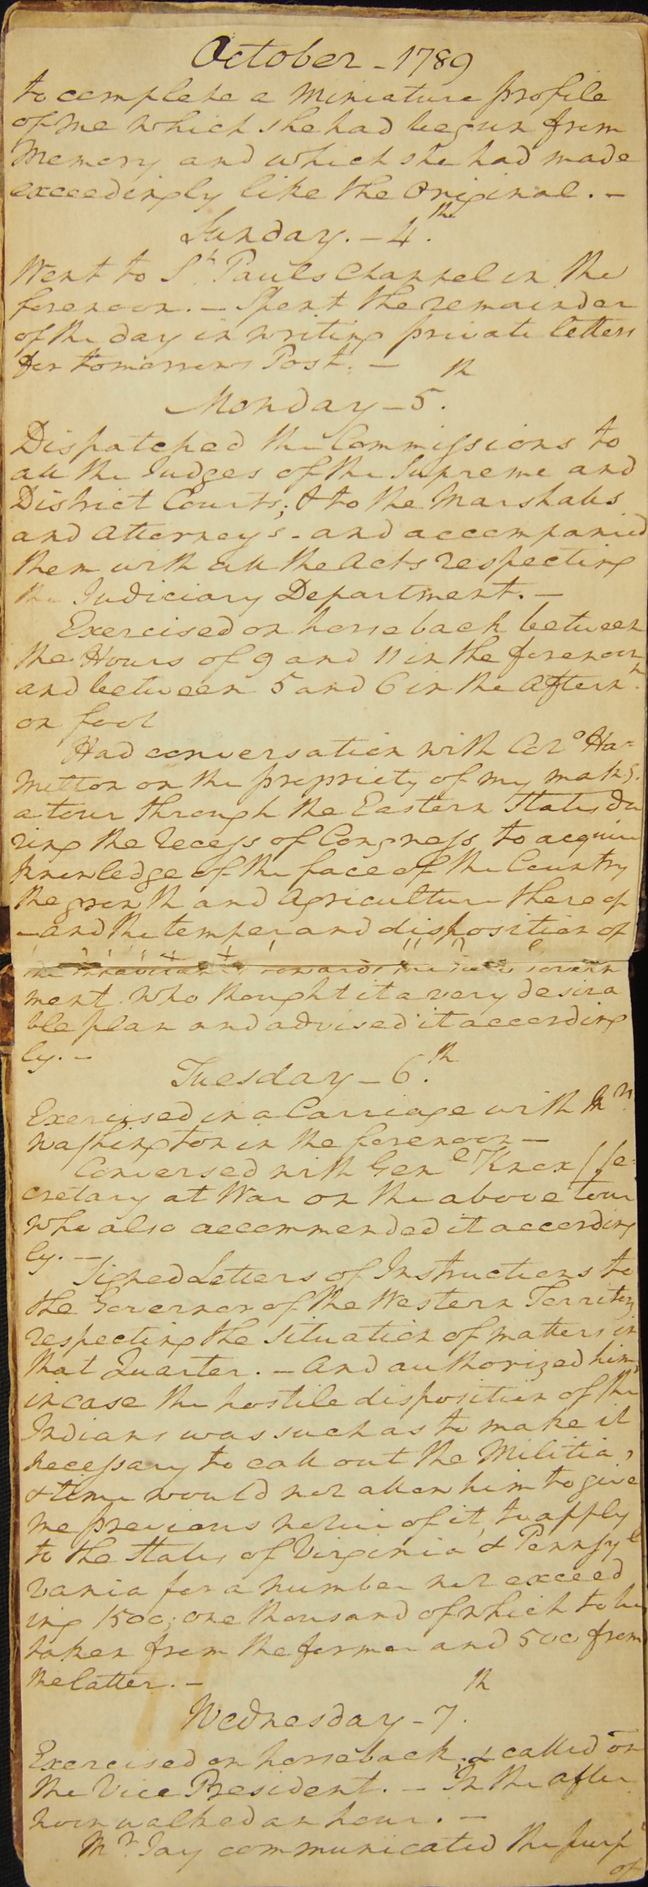 October - 1789
to complete a Miniature profile
of me which she had begun from
Memory and which she had made
exceedingly like the Original. -
Sunday. - 4.th
Went to St. Pauls Chappel in the
forenoon. - Spent the remainder
of the day in writing private letters
for tomorrows Post. -
Monday - 5.th
Dispatched the Commissions to
all the Judges of the Supreme and
District Courts; & to the Marshalls
and Attorneys - and accompanied
them with all the Acts respecting
the Judiciary Department. -
Exercised on horse back between
the Hours of 9 and 11 in the forenoon
and between 5 and 6 in the Aftern.n
on foot
Had conversation with Colo. Ha=
milton on the propriety of my makg.
a tour through the Eastern States du
ring the recess of Congress to acquire
knowledge of the face of the Country
the growth and Agriculture there of
- and the temper and disposition of
the Inhabitants towards the new govern
ment. Who thought it a very desira
ble plan and advised it according
ly. -
Tuesday - 6.th
Exercised in a Carriage with Mrs.
Washington in the forenoon -
Conversed with Genl. Knox (Se=
cretary at War on the above tour
who also recommended it according
ly. -
Signed Letters of Instructions to
the Governor of the Western Territory
respecting the situation of matters in
that Quarter. - And authorized him,
in case the hostile disposition of the
Indians was such as to make it
necessary to call out the Militia,
& time would not allow him to give
me previous notice of it, to apply
to the States of Virginia & Pennsyl
vania for a number not exceed
ing 1500; one thousand of which to be
taken from the former and 500 from
the latter. -
Wednesday - 7.th
Exercised on horseback; & called on
the Vice President. - In the after
noon walked an hour. -
Mr. Jay communicated the purpt
of